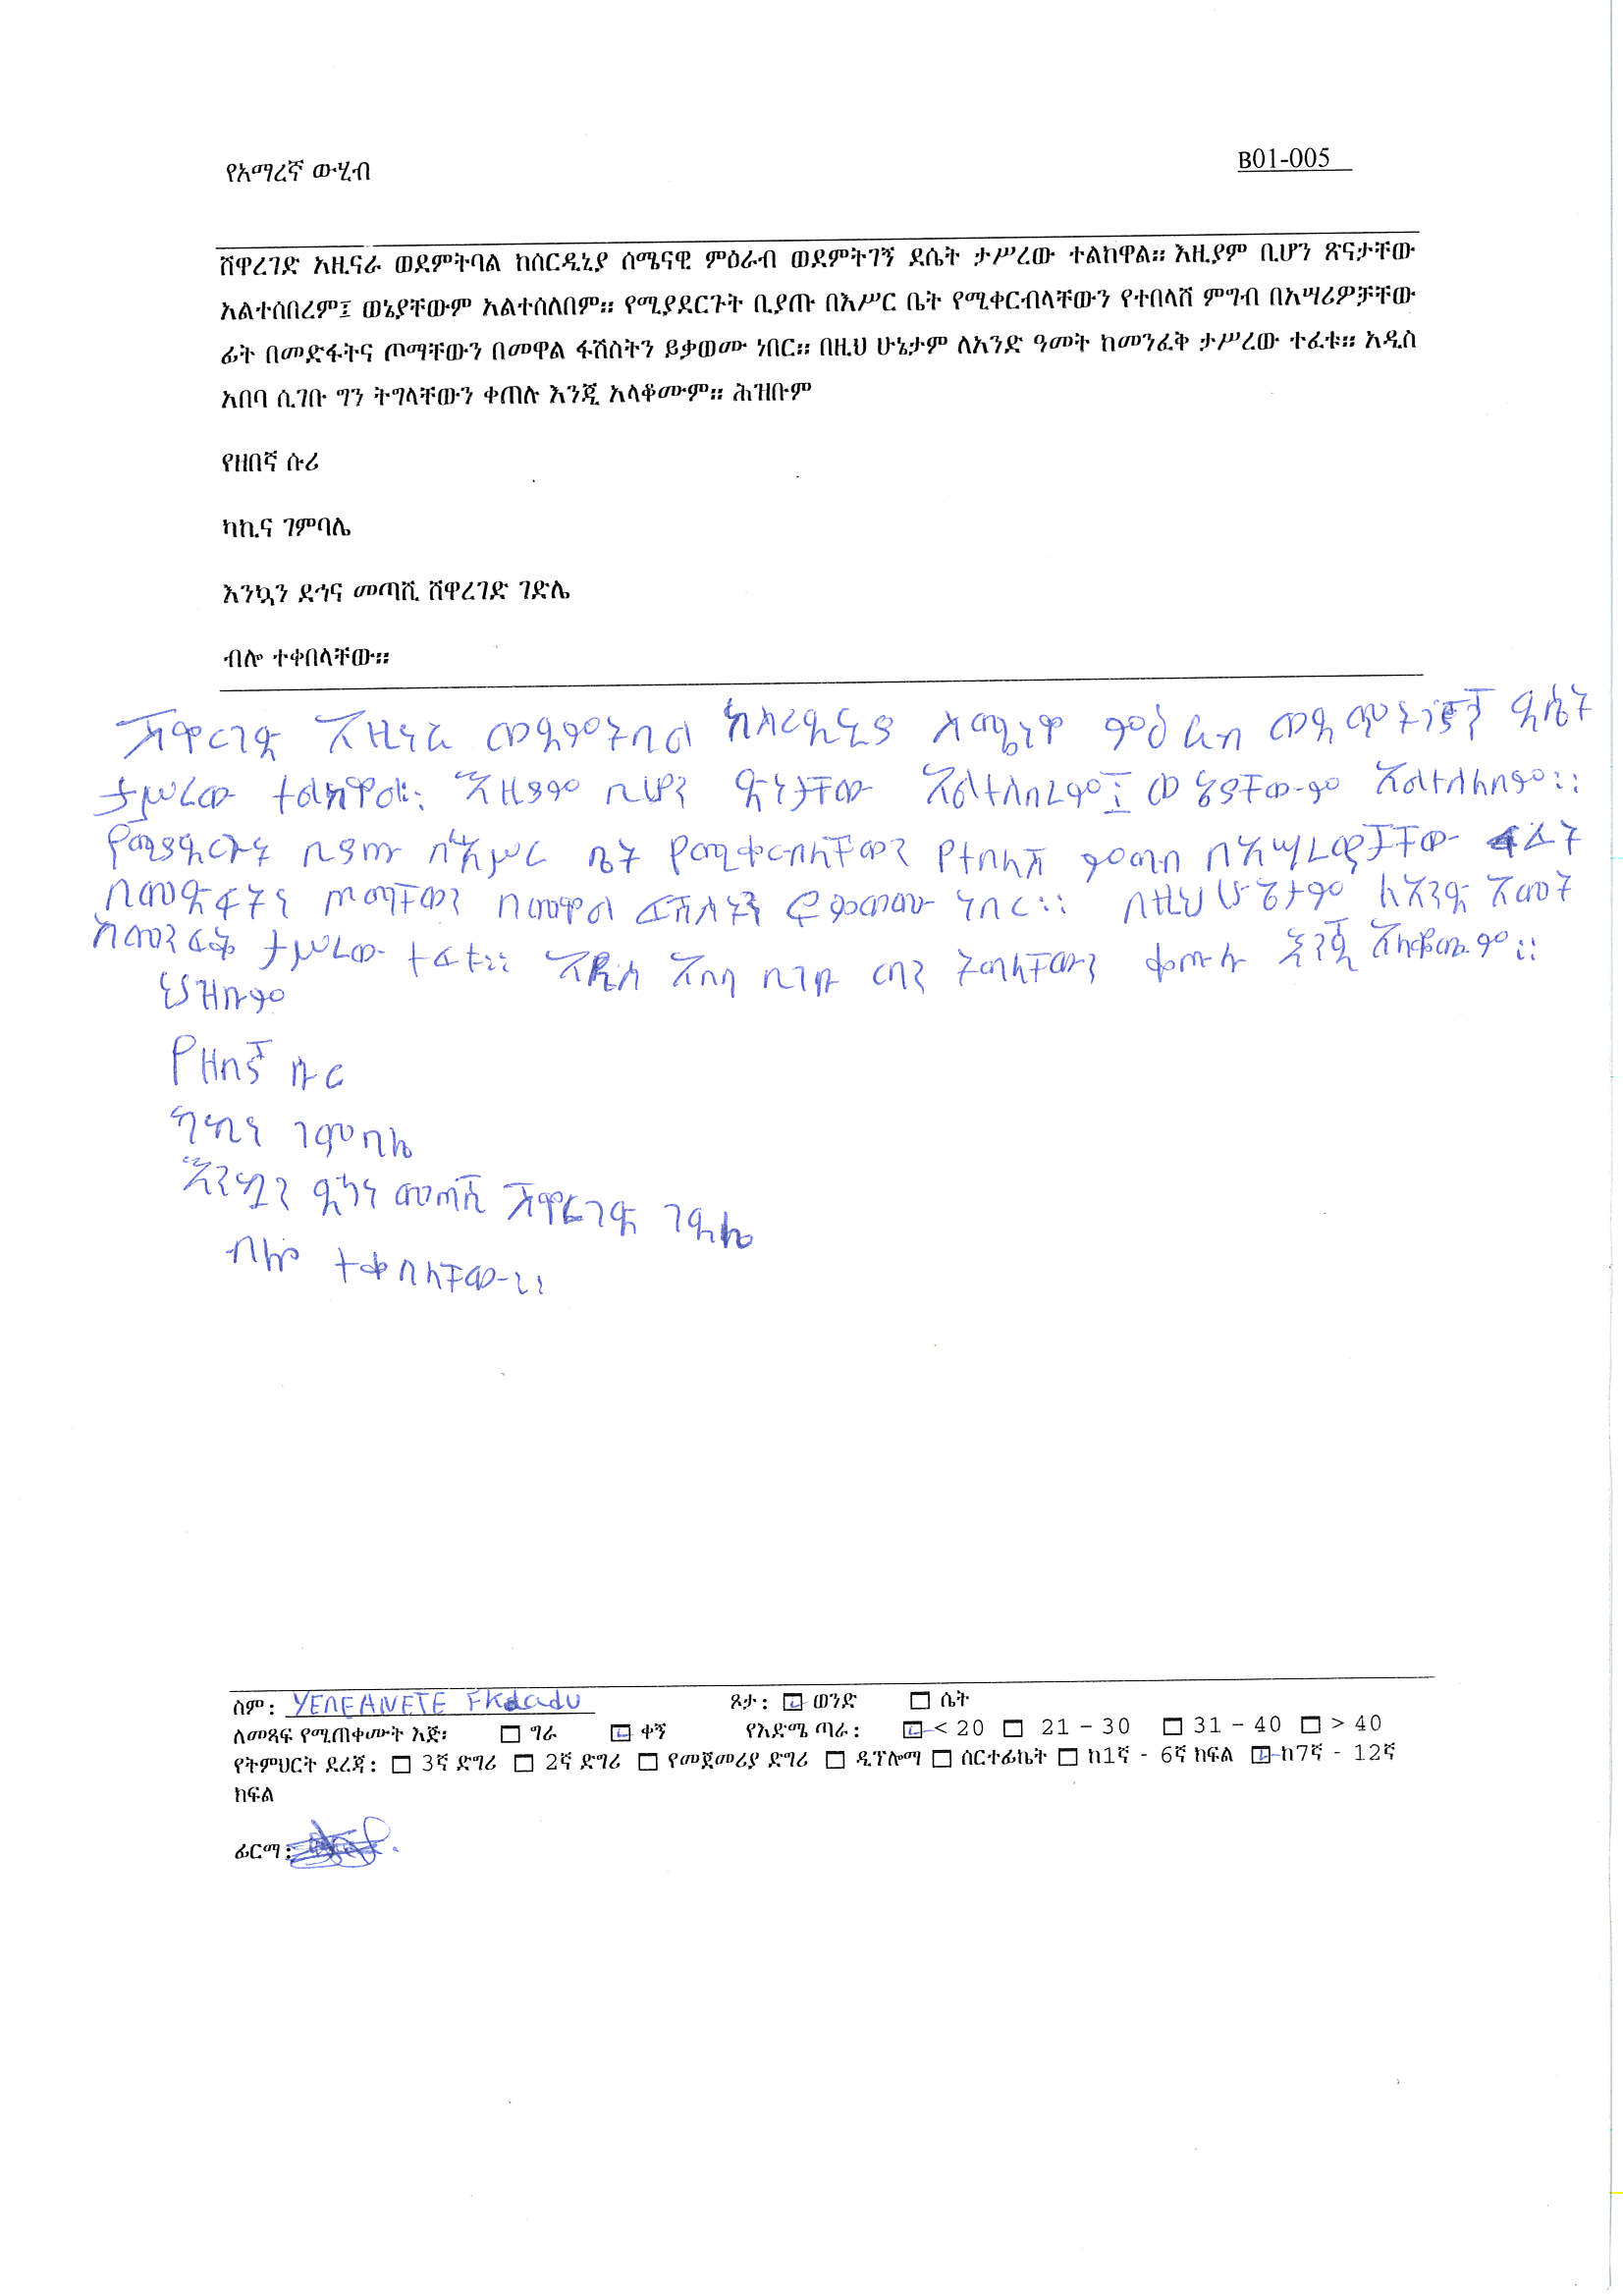 የአማረኛ ውሂብ
B01-005
ሸዋረገድ አዚናራ ወደምትባል ከሰርዲኒያ ሰሜናዊ ምዕራብ ወደምትገኝ ደሴት ታሥረው ተልከዋል። እዚያም ቢሆን ጽናታቸው
አልተሰበረም፤ ወኔያቸውም አልተሰለበም። የሚያደርጉት ቢያጡ በእሥር ቤት የሚቀርብላቸውን የተበላሸ ምግብ በአሣሪዎቻቸው
ፊት በመድፋትና ጦማቸውን በመዋል ፋሽስትን ይቃወሙ ነበር። በዚህ ሁኔታም ለአንድ ዓመት ከመንፈቅ ታሥረው ተፈቱ። አዲስ
አበባ ሲገቡ ግን ትግላቸውን ቀጠሉ እንጂ አላቆሙም። ሕዝቡም
የዘበኛ ሱሪ
ካኪና ገምባሌ
እንኳን ደኅና መጣሺ ሸዋረገድ ገድሌ
ብሎ ተቀበላቸው።
ሸዋርገድ አዚናራ ወደምትባል ከሰረዲኒያ ሰሜነዋ ምዕራብ ወደምትገኝ ደሴት
ታሥረው ተልከዋል። እዚያም ቢሆን ድናታቸው አልተሰበረም፤ ወኔያቸውም አልተሰለበም።
የሚያደርጉት ቢያጡ በእሥር ቤት የሚቀርብላቸወን የተበላሸ ምግብ በአሣሪዎቻቸው ፊት
በመድፋትና ጦማቸወን በመዋል ፋሽስትን ይቃወሙ ነበር። በዚህ ሁኔታም ለአንድ አመት
ከመንፈቅ ታሥረው ተፈቱ። አዲስ አበባ ሲገቡ ግን ትግላቸውን ቀጡሉ እንጂ አላቆሙም።
ህዝቡም
የዘበኛ ሱሪ
ካኪና ገምባሌ
እንኳን ደኅና መጣሺ ሸዋረገድ ገዴሌ
ብሎ ተቀበላቸው።
ስም: YENEANETE FKdadu ጾታ: ወንድ ሴት
ለመጻፍ የሚጠቀሙት እጅ: ግራ ቀኝ የእድሜ ጣራ: < 20 21 – 30 31 – 40 > 40
የትምህርት ደረጃ: 3ኛ ድግሪ 2ኛ ድግሪ የመጀመሪያ ድግሪ ዲፕሎማ ሰርተፊኬት ከ1ኛ - 6ኛ ክፍል ከ7ኛ - 12ኛ
ክፍል
ፊርማ: